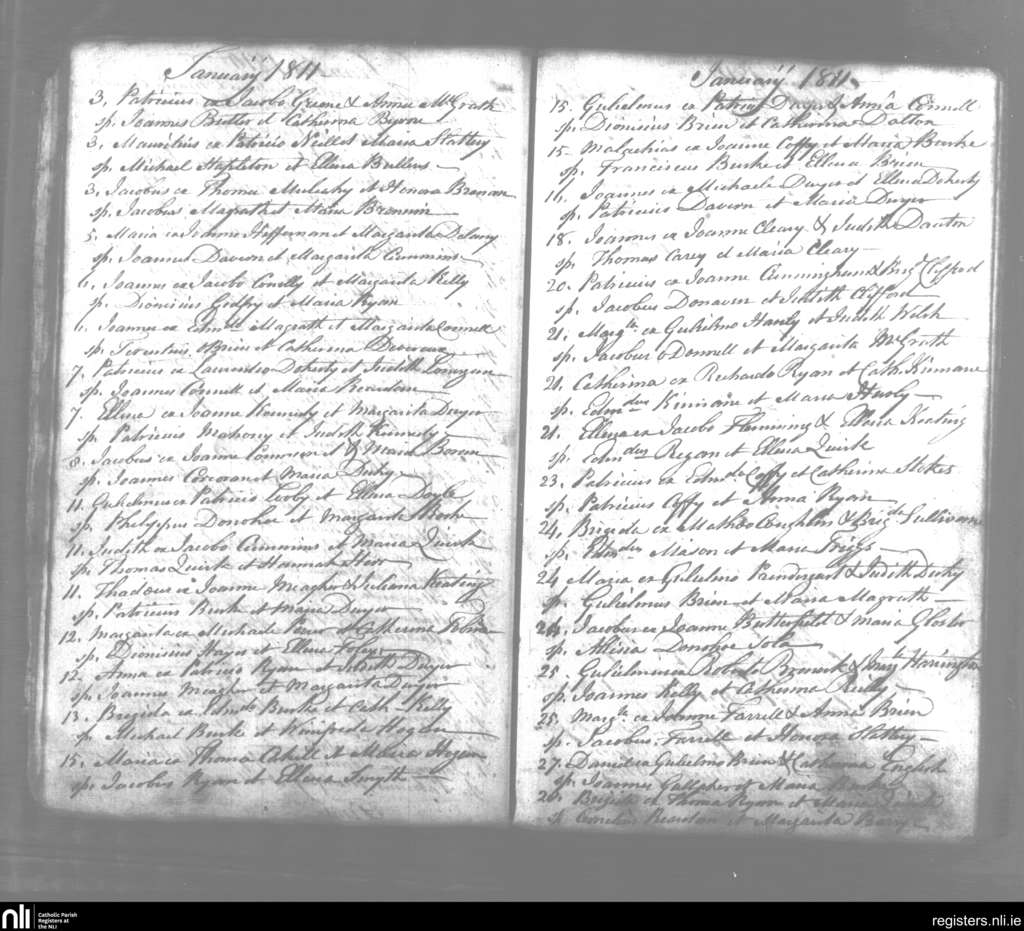 January 1811
3, Patricius ex Jacobo Greene & Anna McGrath
sp. Joannes Butler et Catherina Byrne
3, Mauritius ex Patricio Neill et Maria Slattery
sp. Michael Stapleton et Ellena
3, Jacobus ex Thoma Mulcahy et Honora Brenan
sp. Jacobus Magrath et Maria
5. Maria ex Joanne Heffernan et Margarita Delany
sp. Joannes Davern et Margarita Cummins
6, Joannes ex Jacobo Conolly et Margarita Kelly
sp. Dionisius Godfry et Maria Ryan
6. Joannes ex Edmdo Magrath et Margarita Connell
sp. Terentius OBrien et Catherina Devereux
7, Patricius ex Laurentio Doherty et Judith Lonergan
sp. Joannes Connell et Maria Reardon
7. Ellena ex Joanne Kennedy et Margarita Dwyer
sp. Patricius Mahony et Judith Kennedy
8. Jacobus ex Joanne et Maria
sp. Joannes Corcoran et Maria
11. Gulielmus ex Patricio Looby et Ellena Doyle
sp. Philippus Donohoe et Margarita
11. Judith ex Jacobo Cummins et Maria Quirk
sp. Thomas Quirk et Hannah
11. Thadeus ex Joanne Meagher & Juliana Keating
sp. Patricius Burke et Maria Dwyer
12. Margarita ex Michaele Power et Catherina Tobin
sp. Dionisius Hayes et Ellena
12. Anna ex Patricio Ryan et Judith Dwyer
sp. Joannes Meagher et Margarita Dwyer
13. Brigida ex Edmdo Burke et Cath. Kelly
sp. Michael Burke et Winifreda Hogan
15. Maria ex Thoma Cahill & Maria Hogan
sp. Jacobus Ryan et Ellena Smyth
January 1811
15. Gulielmus ex Patricio Dwyer & Anna Connell
sp. Dionisius Brien et Catherina Dalton
15- Malachias ex Joanne Coffy et Maria Burke
sp. Franciscus Burke et Ellena Brien
16, Joannes ex Michaele Dwyer et Ellena Doherty
sp. Patricius Davern et Maria Dwyer
18. Joannes ex Joanne Cleary & Judith Danton
sp. Thomas Carey et Maria Cleary
20. Patricius ex Joanne Cunningham & Brigd Clifford
sp. Jacobus Donaven et Judith Clifford
21. Margta ex Gulielmo Hanly et Judith Welsh
sp. Jacobus ODonnell et Margarita McGrath
21. Catherina ex Richardo Ryan et Cath. Kinnane
sp. Edmdus Kinnane et Maria Hanly
21. Ellena ex Jacobo Flemming & Maria Keating
sp. Edmdus Regan et Ellena Quirk
23. Patricius ex Edmdo Coffy et Catherina Stokes
sp. Patricius Coffy et Anna Ryan
24, Brigida ex Mathæo Coughlin & Brigda Sullivan
sp. Edmdus Mason et Maria Griggs
24 Maria ex Gulielmo Prendergast & Judith Duhy
sp. Gulielmus Brien et Maria Magrath
24. Jacobus ex Joanne Butterfield & Maria Gloster
sp. Allisia Donohoe Sola
25. Gulielmus ex Roberto & Margta Harrington
sp. Joannes Kelly et Catherina Reilly
25. Margta ex Joanne Farrell & Anna Brien
sp. Jacobus Farrell et Honora Slattery
27. Daniel ex Gulielmo Brien & Catherina English
sp. Joannes Gallagher et Maria
28. Brigida ex Thoma Ryan et Maria
sp. Cornelius Reardon et Margarita Barry
nli
Catholic Parish
Registers at
the NLI
registers.nli.ie